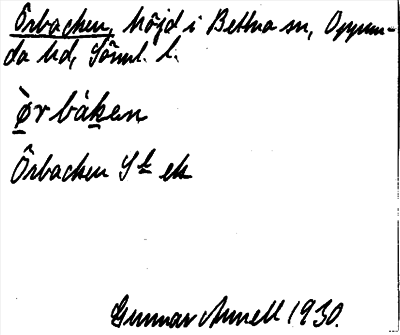 Örbacken, höjd i Bettna sn, Oppun-
da hd, Sörml. l.
ø̀r bàken
Örbacken Sk ek
Gunnar Arnell 1930.